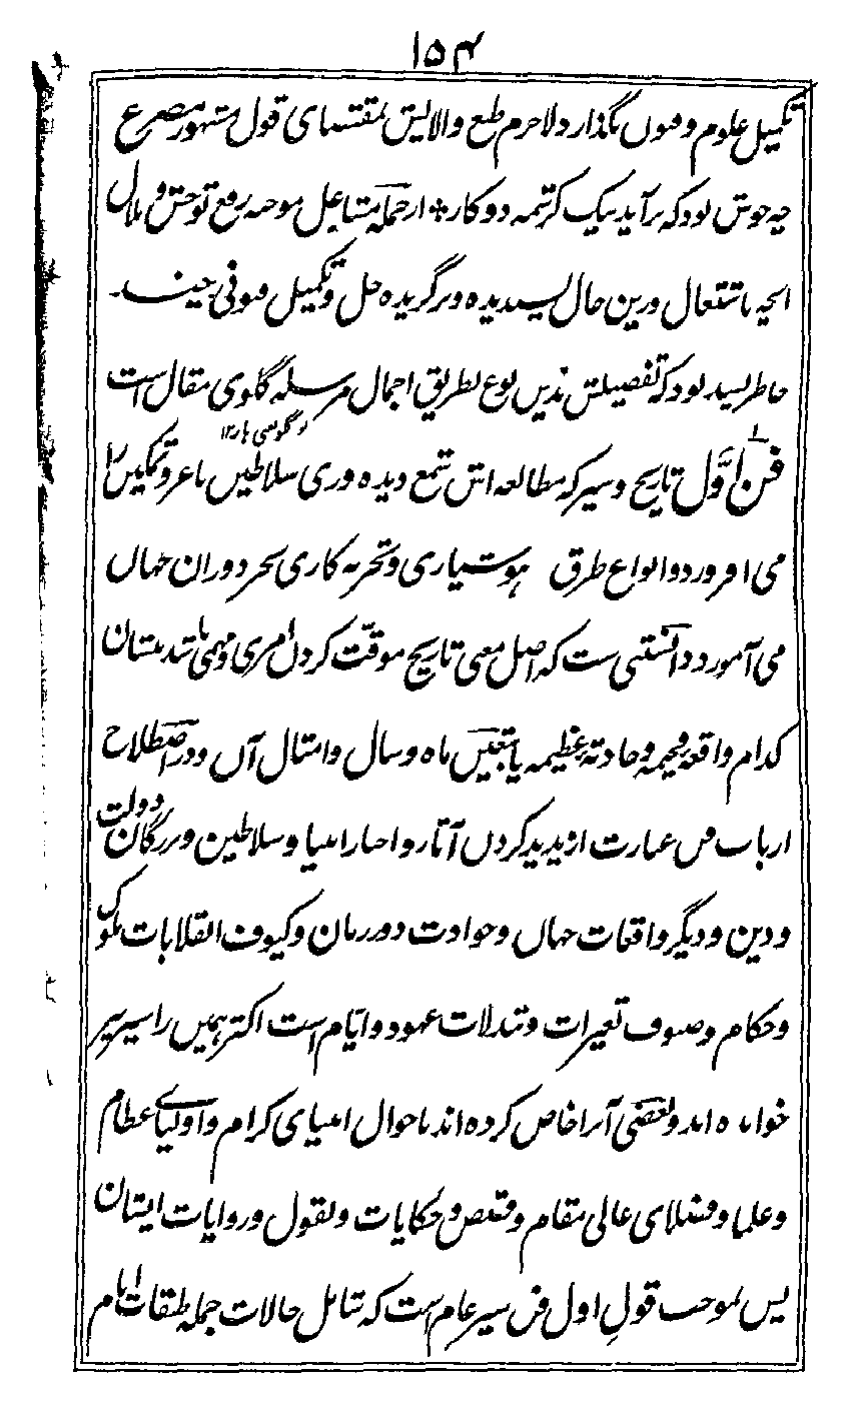 ۱۵۴
تکمیل علوم و فنون بگذارد لاجرم طبع والایش بمقتضای قول مشهور مصرع
چه خوش بود که برآید بیک کرشمه دو کار * ازجمله مشاغل موجه رفع توحش و ملال
انچه باشتغال ورین حال پسندیده و برگزیده حل و تکمیل فنونی چند
خاطرپسند بود که تفصیلش بدین نوع بطریق اجمال مرسله گلوی مقال است
فن اول تاریخ و سیر که مطالعه اش شمع دیده وری سلاطین با عز و تمکین را
می افروزد و انواع طرق هوشیاری و تجربه کاری بحر دوران جهان
می آموزد دانستنی ست که اصل معنی تاریخ موقت کردن امری و مهمی باشد بشان
کدام واقعه فخیمه و حادثه عظیمه یا بتعین ماه و سال و امثال آن و در اصطلاح
ارباب فن عبارت از پدید کردن آثار و اخبار انبیا و سلاطین و بزرگان دولت
و دین و دیگر واقعات جهان و حوادث دور زمان و کیوف انقلابات ملوک
و حکام و صنوف تغیرات و تبدلات عهود و ایام است اکثر همین را سیر نیز
خوانده اند و بعضی آنرا خاص کرده اند باحوال انبیای کرام و اولیای عظام
و علما و فضلای عالی مقام و قصص و حکایات و نقول و روایات ایشان
پس بموجب قول اول فن سیر عام است که شامل حالات جمله طبقات انام